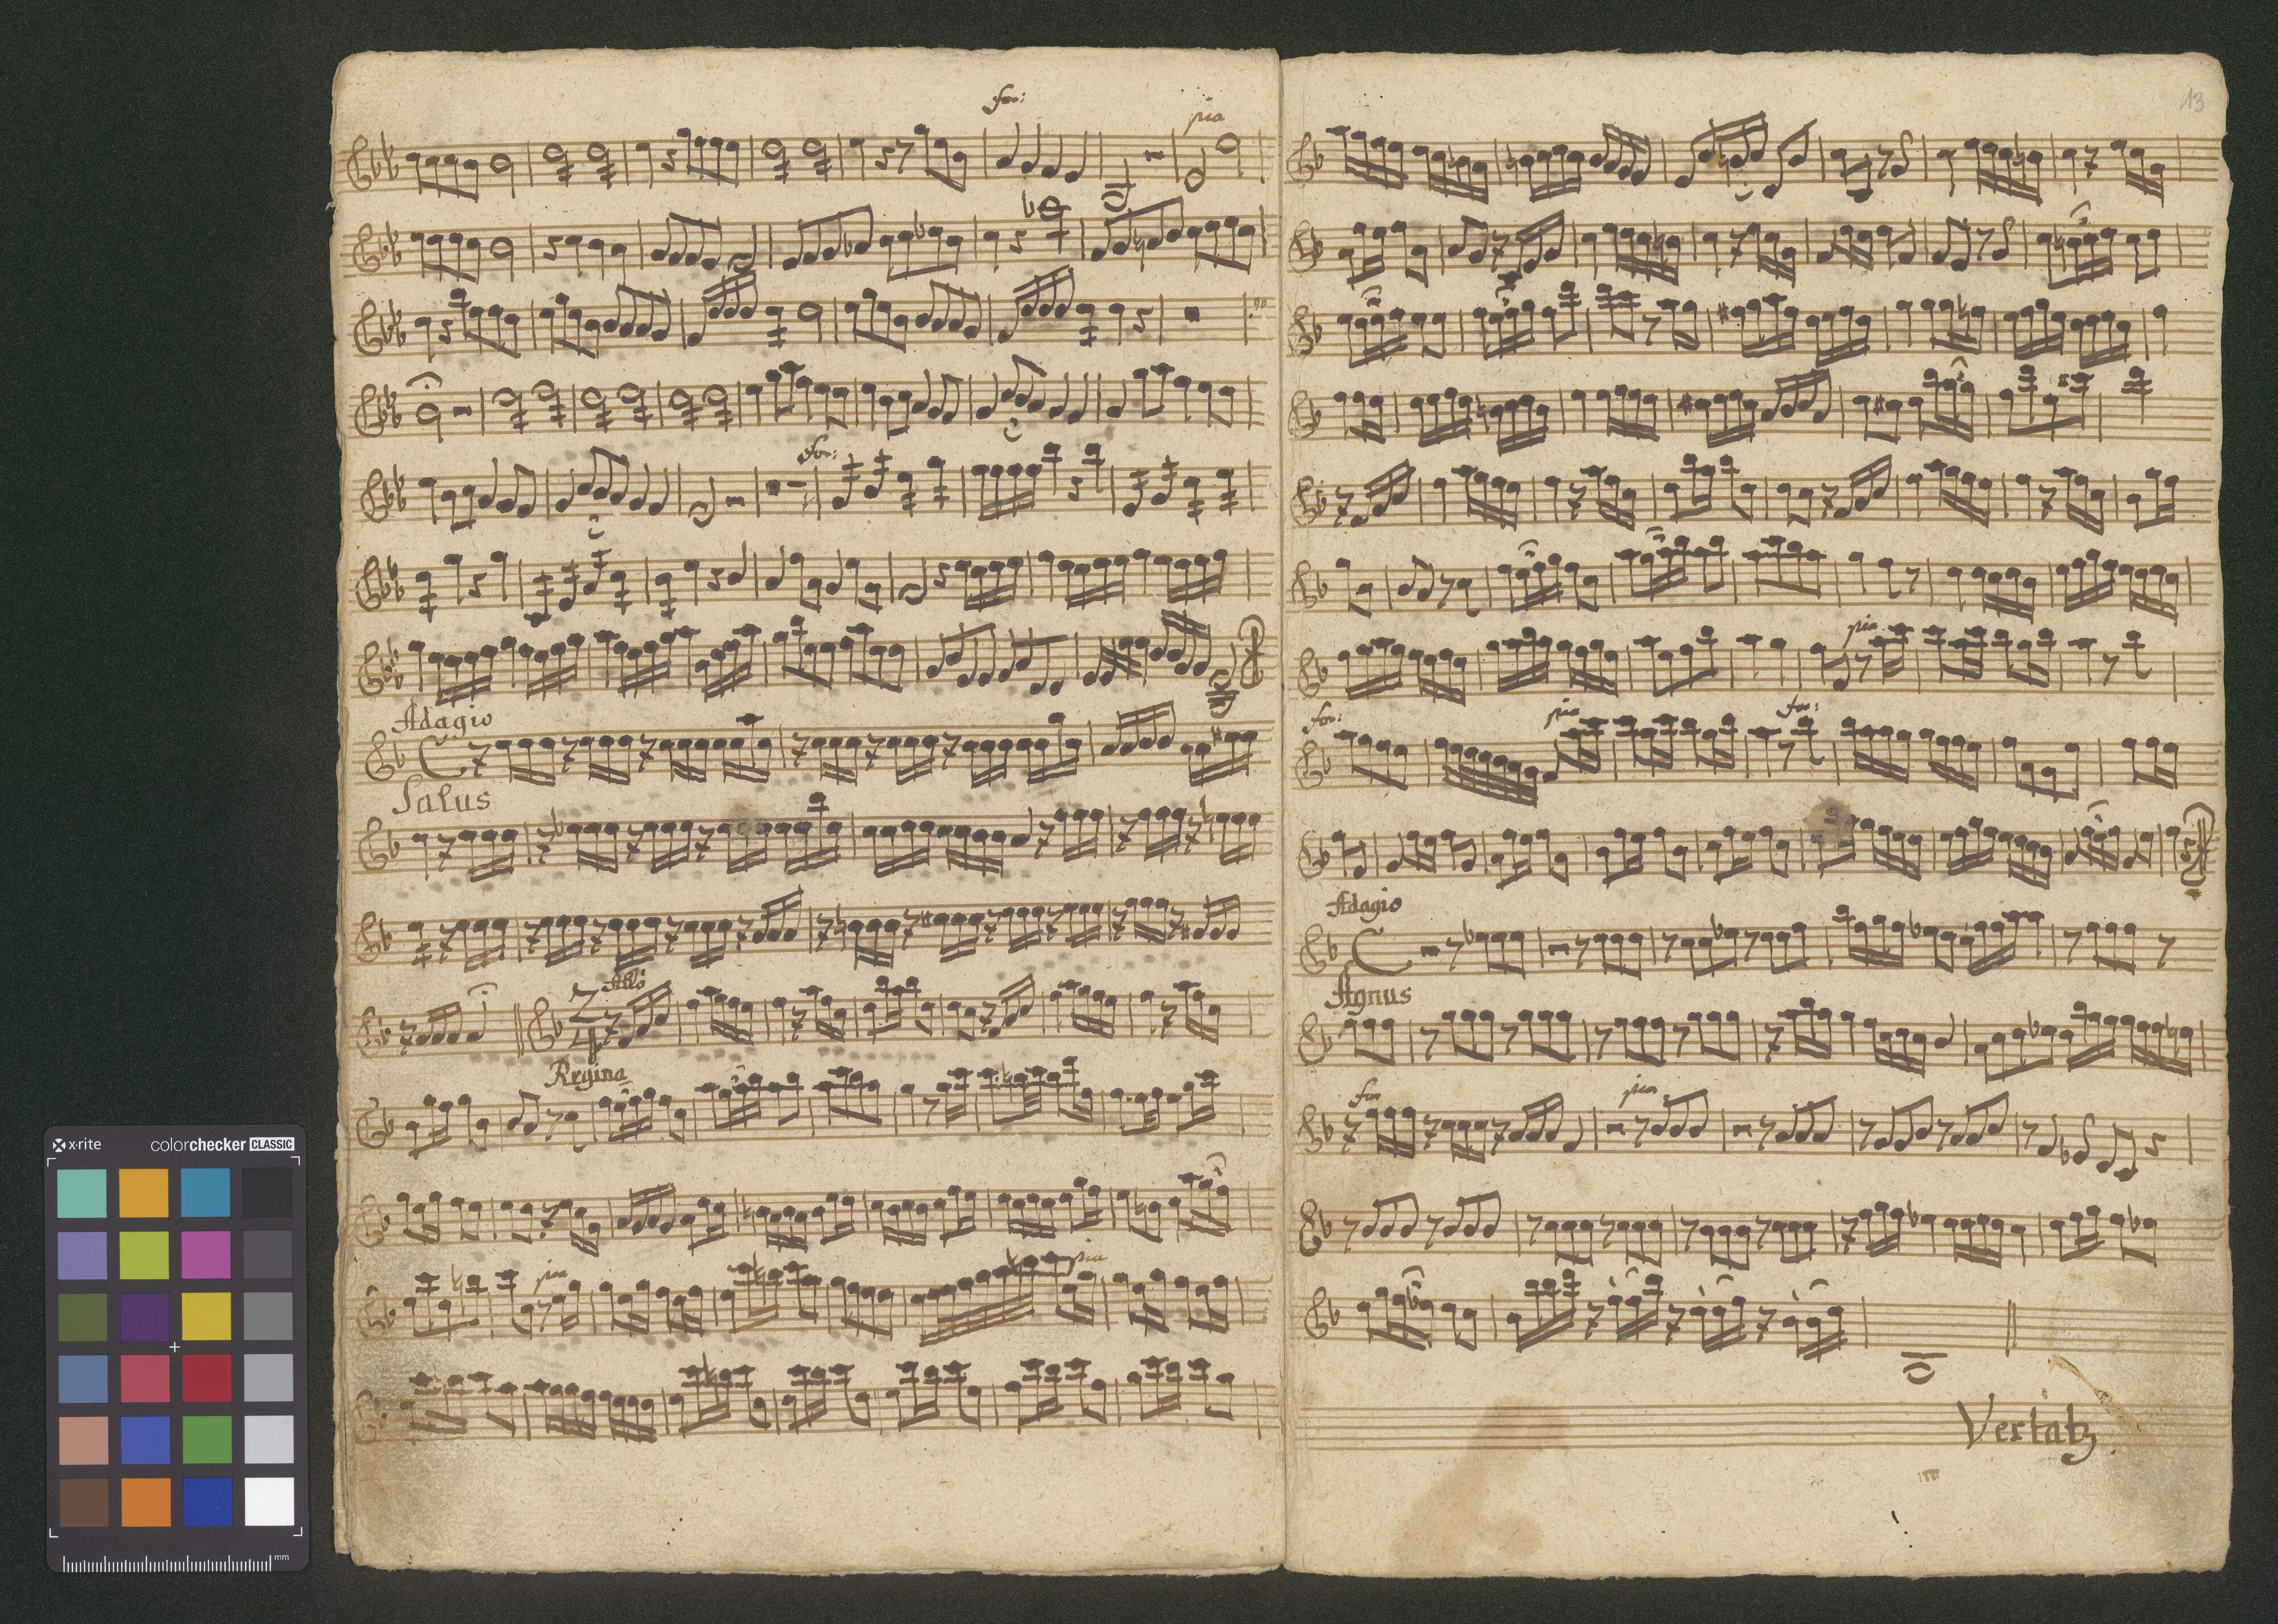 for:
pia
for:
Adagio
Salus
Allo
Regina
pia
pia
x-rite
colorchecker CLASSIC
mm
13
pia
for:
pia
for:
Adagio
Agnus
for
pia
Vertatz